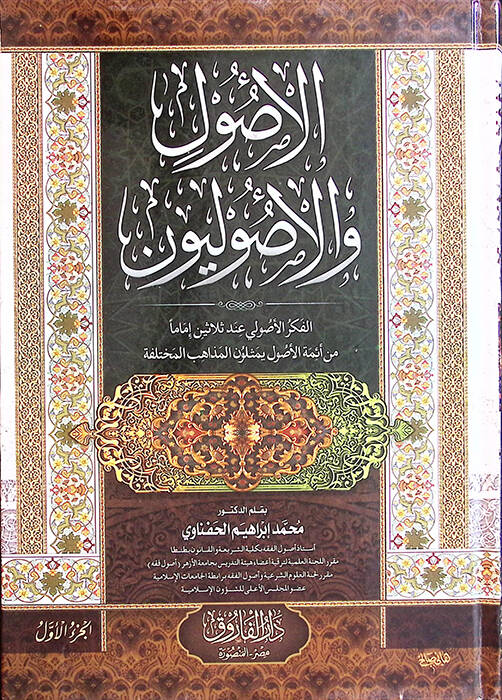 الأصُولِ
والأصُوليون
الفكرُ الأصُولي عند ثلاثين إماماً
من أئمة الأصُول يمثلون المذاهب المختلفة
بقلم الدكتور
محمد إبراهيم الحفناوي
أستاذ أصول الفقه بكلية الشريعة والقانون بطنطا
مقرر اللجنة العلمية لترقية أعضاء هيئة التدريس بجامعة الأزهر (أصول فقه)
مقرر لجنة العلوم الشرعية وأصول الفقه برابطة الجامعات الإسلامية
عضو المجلس الأعلى للشؤون الإسلامية
دار الفاروق
مصر - المنصورة
الجزء الأول